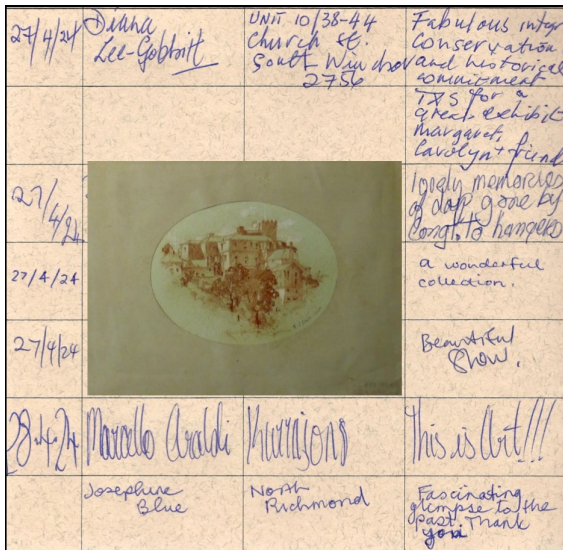 27/4/24
Diana
Lee-Gobbitt
UNIT 10/38-44
Church St.
South Windsor
2756
Fabulous
conservation
and historical
commitment
TXS for a
great exhibit
Margaret,
Carolyn + friend
27/4/24
lovely memories
of days gone by
27/4/24
a wonderful
collection.
27/4/24
Beautiful
Show.
28.4.24
Marcello Araldi
Kurrajong
This is Art!!!
Josephine
Blue
North
Richmond
Fascinating
glimpse to the
past. Thank
you